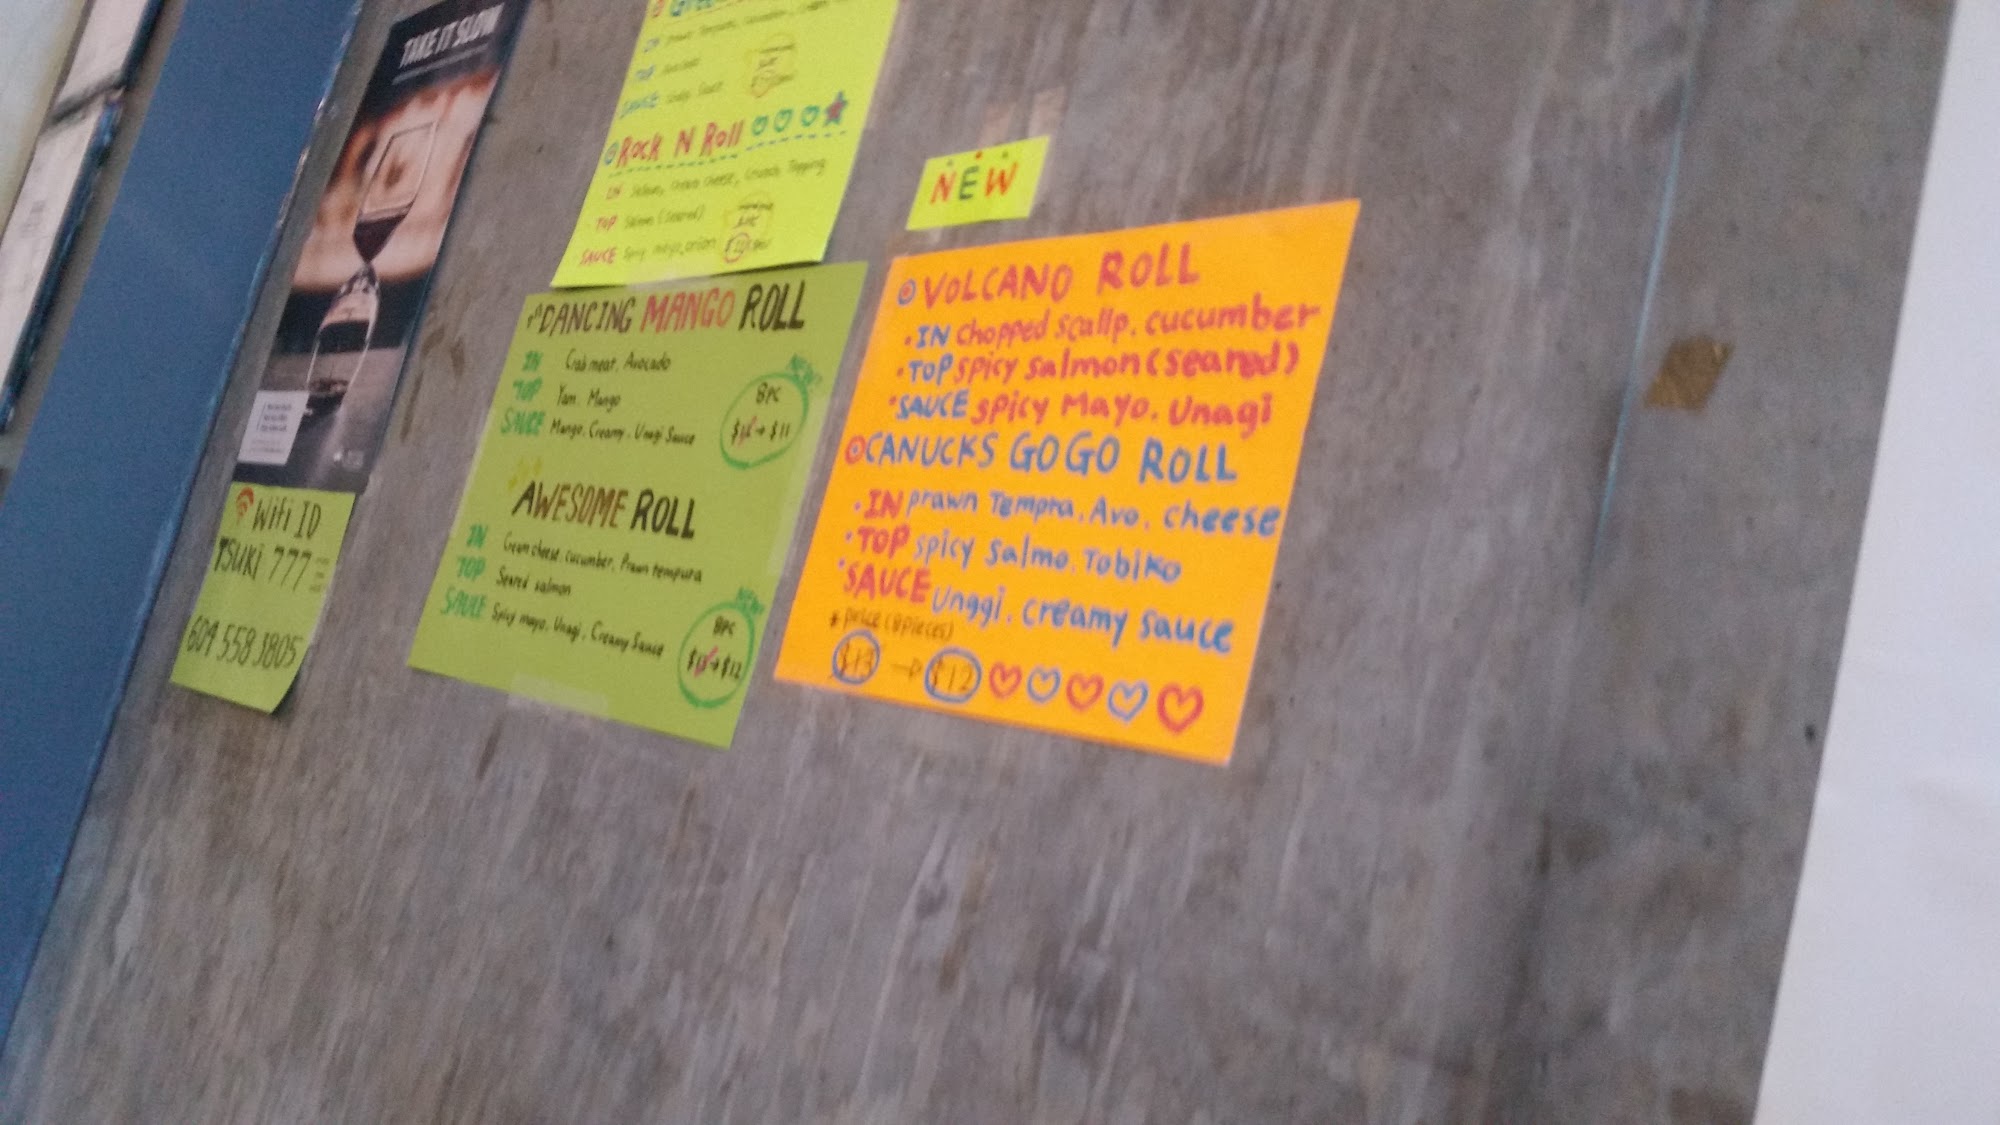 TAKE IT SLOW
TOP
SAUCE
ROCK N ROLL
IN Cream cheese, Crunch Topping
TOP Salmon (Seared)
SAUCE Spicy mayo, onion
NEW
DANCING MANGO ROLL
IN Crab meat, Avocado
TOP Yam, Mango
SAUCE Mango, Creamy, Unagi Sauce
8PC
$12→$11
AWESOME ROLL
IN Cream cheese, cucumber, Prawn tempura
TOP Seared salmon
SAUCE Spicy mayo, Unagi, Creamy Sauce
8PC
$13→$12
VOLCANO ROLL
IN chopped scallp, cucumber
TOP spicy salmon (seared)
SAUCE spicy Mayo, Unagi
CANUCKS GO GO ROLL
IN prawn Tempra, Avo, cheese
TOP spicy Salmo, Tobiko
SAUCE Unggi, creamy sauce
* price (8pieces)
$13 → $12
Wifi ID
TSUKI 777
604 558 3805